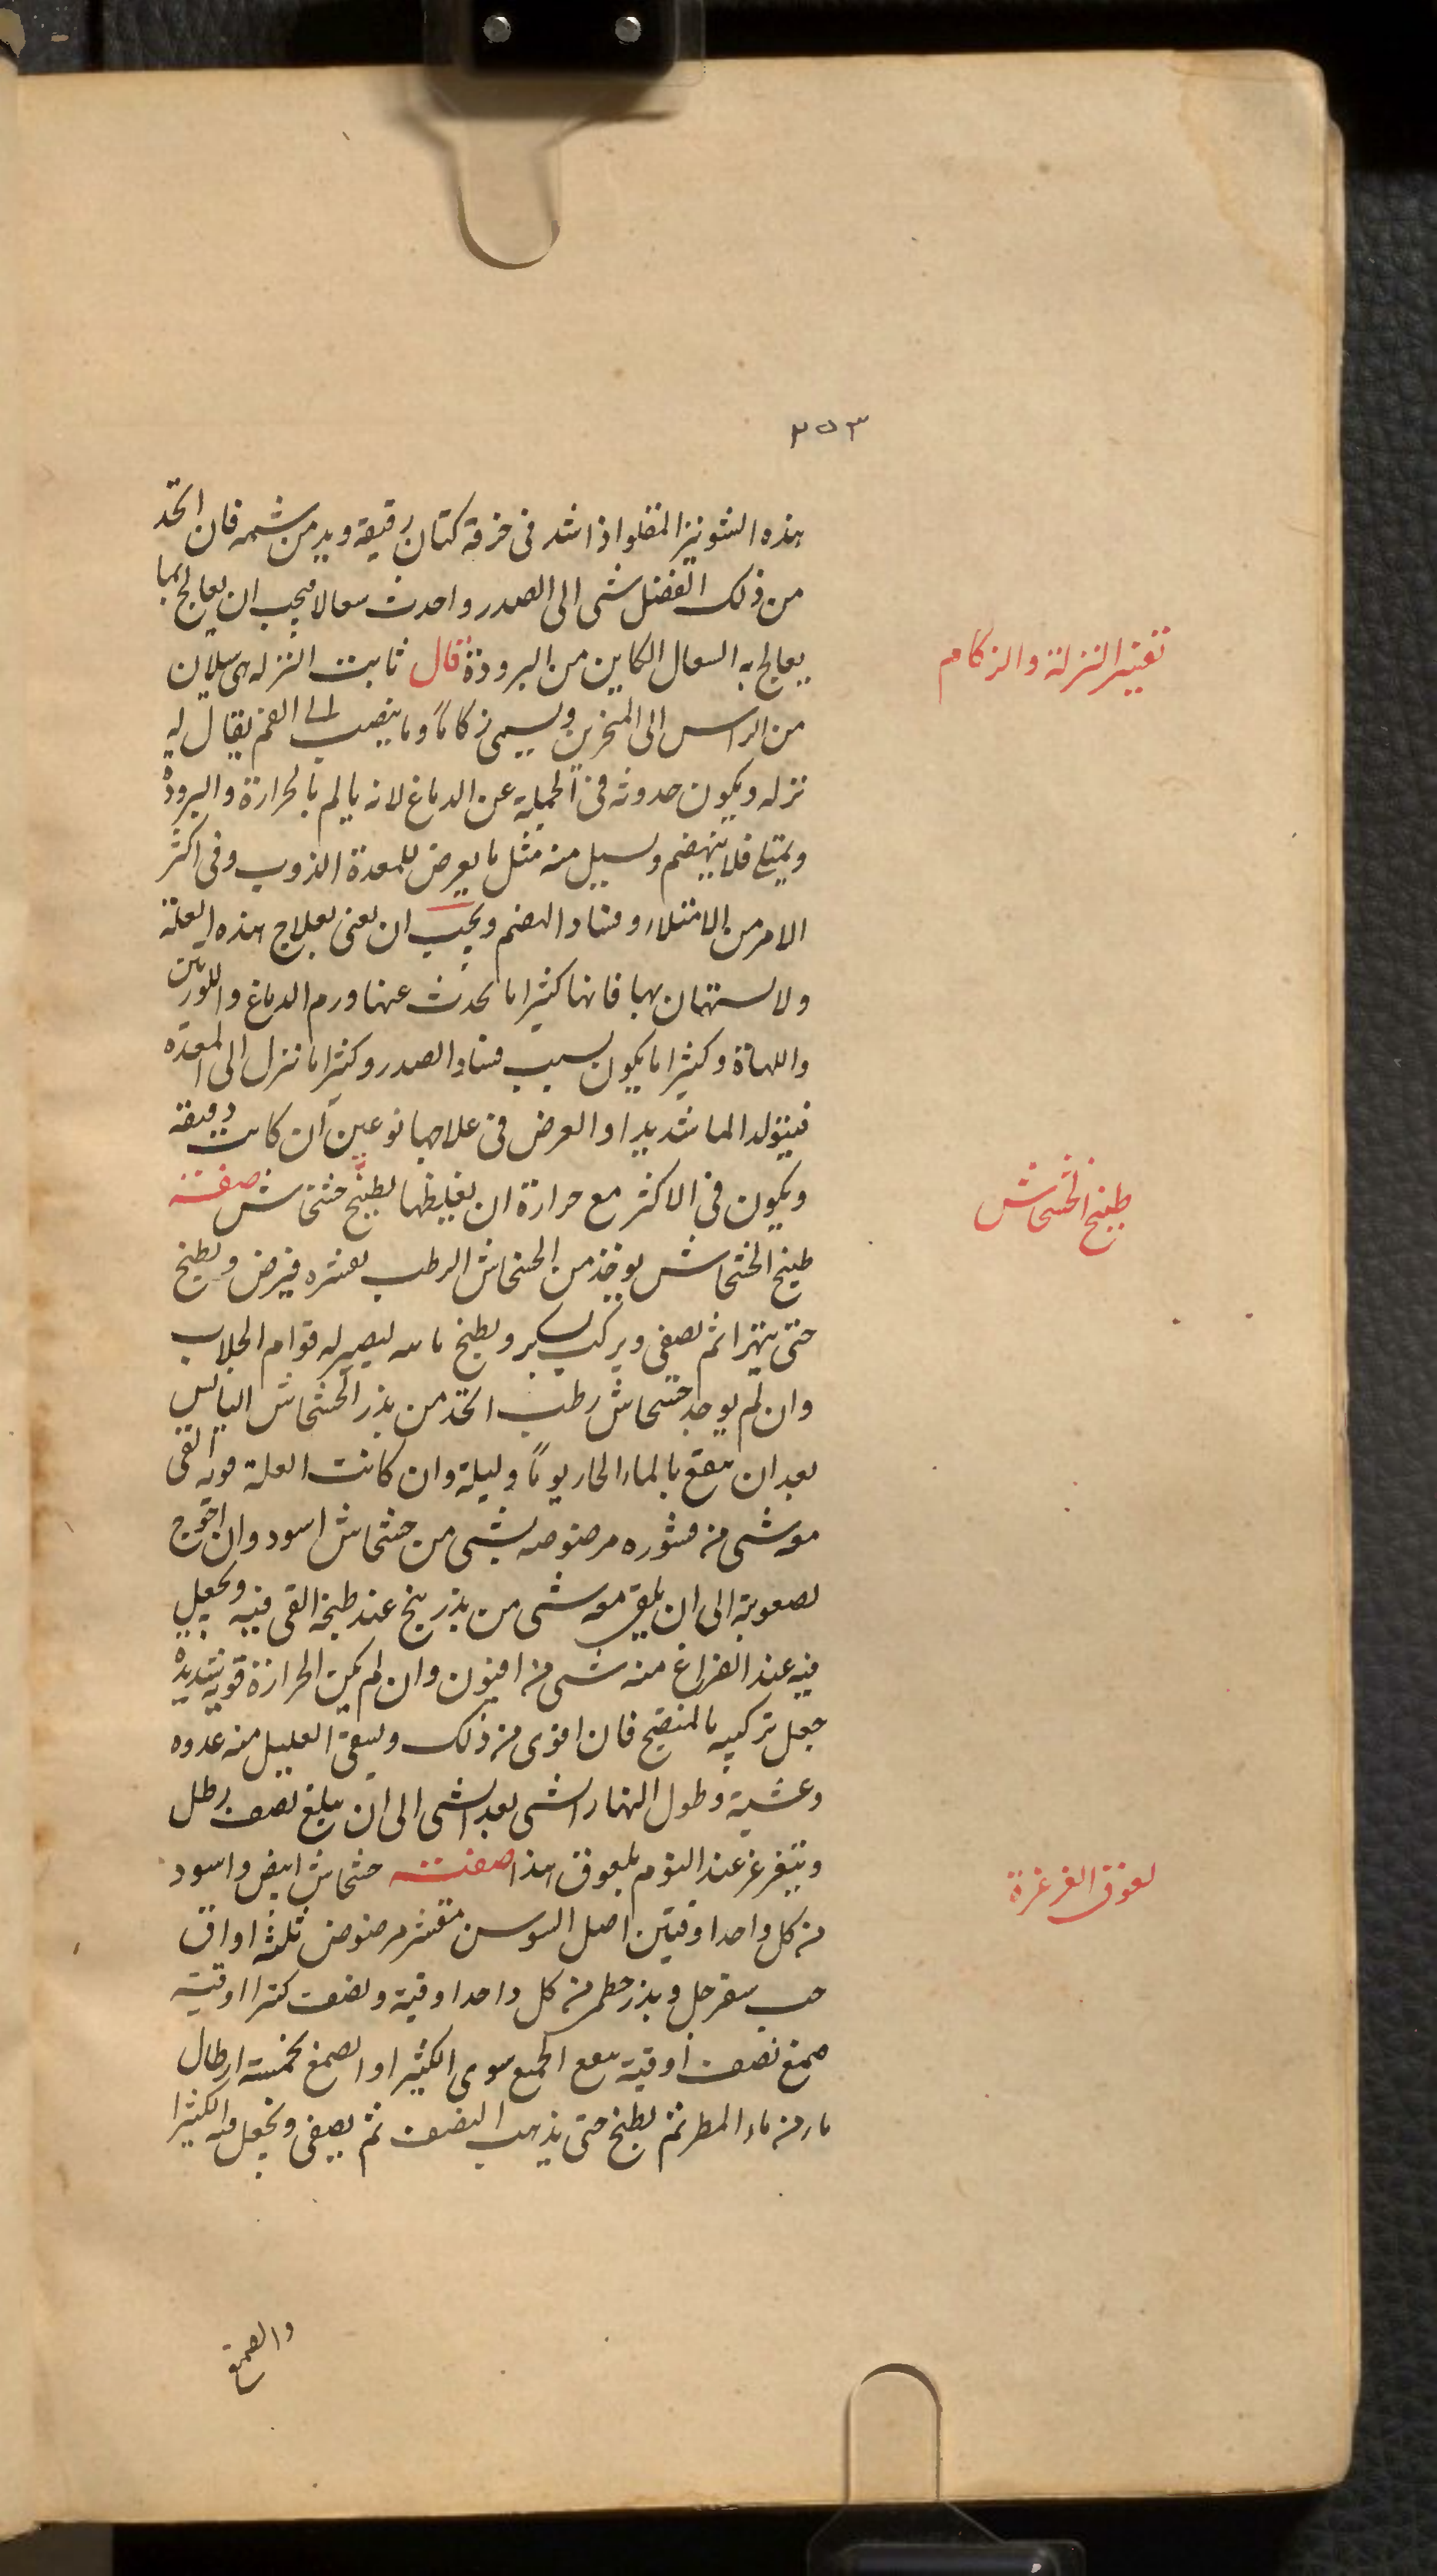 ٣٥٣
هذه الشونيز المقلو اذا شد فى خرقة كتان رقيقة ويدمن شمه فان اتخذ
من ذلك الفضل شى الى الصدر واحدث سعالا فيجب ان يعالج بما
يعالج به السعال الكاين من البرودة قال ثابت النزله هى سيلان
تفسير النزلة والزكام
من الراس الى المنخرين ويسمى زكاماً وما ينصب الى الفم يقال له
نزله ويكون حدوثه فى الجملة عن الدماغ لانه يالم بالحرارة والبرودة
ويمتلى فلا ينهضم ويسيل منه مثل ما يعرض للمعدة الذوب وفى اكثر
الامر من الامتلاء وفساد الهضم ويجب ان يعنى بعلاج هذه العلة
ولا يستهان بها فانها كثيرا ما يحدث عنها ورم الدماغ واللوزتين
واللهاة وكثيرا ما يكون سبب فساد الصدر وكثيرا ما تنزل الى المعدة
فيتولد الما شديدا والعرض فى علاجها نوعين ان كانت رقيقة
ويكون فى الاكثر مع حرارة ان يغيلظها بطبيخ خشخاش صفته
طبيخ الخشخاش
طبيخ الخشخاش يوخذ من الخشخاش الرطب بقشره فيرض ويطبخ
حتى يتهرا ثم يصفى ويركب بسكر ويطبخ ليصير له قوام الجلاب
وان لم يوجد خشخاش رطب اتخذ من بذر الخشخاش اليابس
بعد ان ينقع بالماء الحار يوماً وليلة وان كانت العلة قويه القى
معه شى من قشوره مرضوضه بشى من خشخاش اسود وان احوج
لصعوبة الى ان يلقى معه شى من بذر بنج عند طبخه القى فيه ويجعل
فيه عند الفراغ منه شى من افيون وان لم يكن الحرارة قويه شديدة
جعل تركيبه بالمنضج فان اقوى من ذلك ويسقى العليل منه غدوه
وعشية وطول النهار الشى بعد الشى الى ان يبلغ نصف رطل
ويتغرغر عند النوم بلعوق هذا صفته خشخاش ابيض واسود
لعوق الغرغرة
من كل واحد اوقيتين اصل السوسن مقشر مرضوض ثلثة اواق
حب سفرجل وبذر خطمى من كل واحد اوقية ونصف كثيرا اوقية
صمغ نصف اوقية ينقع الجميع سوى الكثيرا والصمغ بخمسة ارطال
ماء من ماء المطر ثم يطبخ حتى يذهب النصف ثم يصفى ويجعل فيه الكثيرا
والصمغ